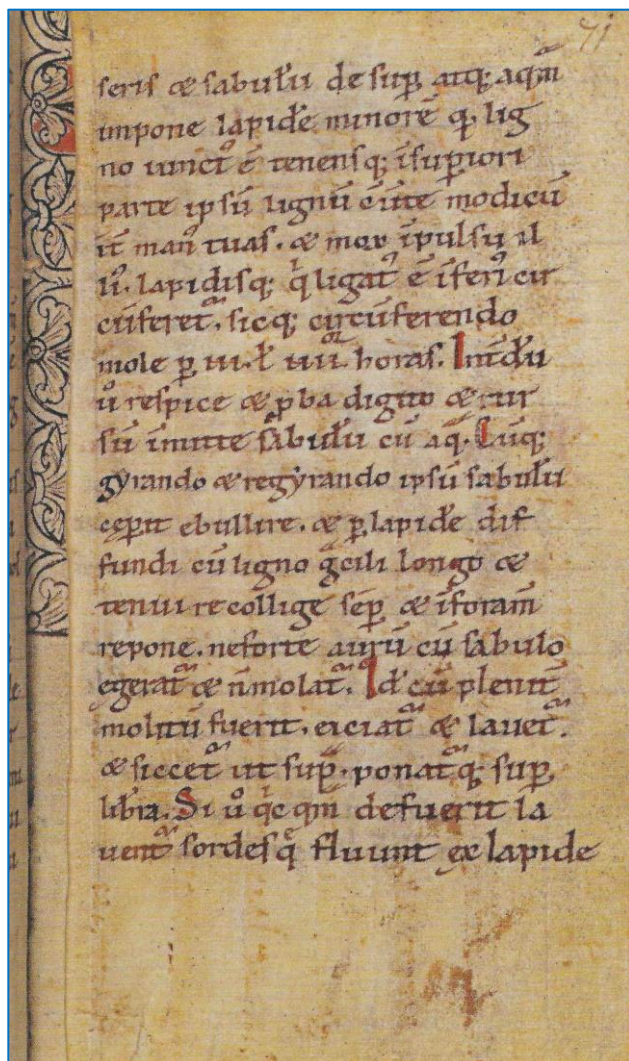 71
seris & sabulū de sup̱ atq; aqā
impone lapidē minorē q̇ lig
no iunct᷒ ē tenensq; īsup̱iori
parte ipsū lignū c̄ūte modicū
it̄ man᷒ tuas. & mox īpulsu il
li᷒. lapidisq; q̇ ligat᷒ ē īferi᷒ cir
cūferet᷑. sicq; circūferendo
mole p̱ iii. ł iiii᷒ horas. Int̄dū
ū respice & p̱ba digito & rur
sū īmitte sabulū cū aq̄. Cūq;
gyrando & regyrando ipsū sabulū
cęp̱it ebullire. & p̱ lapidē dif
fundi cū ligno g̊cili longo &
tenui recollige sēp̱ & īforam̄
repone. neforte aurū cū sabulo
egerat᷑ & n̄ molat᷑. Id cū plenit̄
molitū fuerit. eiciat᷑ & lauet᷑.
& siccet᷑ ut sup̱. ponat᷑q; sup̱
librā. Si ū q̇c q̄m defuerit la
uent᷑ sordes q̄ fluunt ex lapide